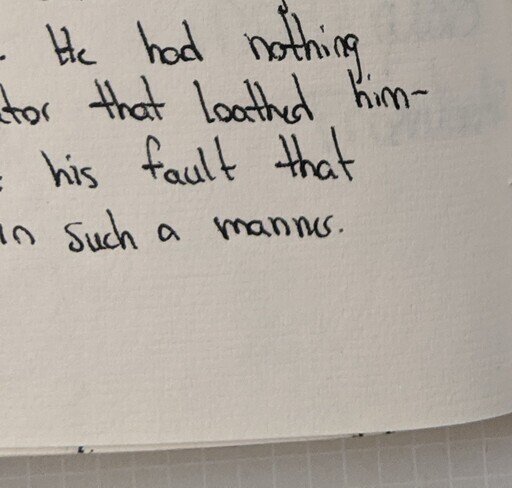 . He had nothing
tor that loathed him-
his fault that
in such a manner.